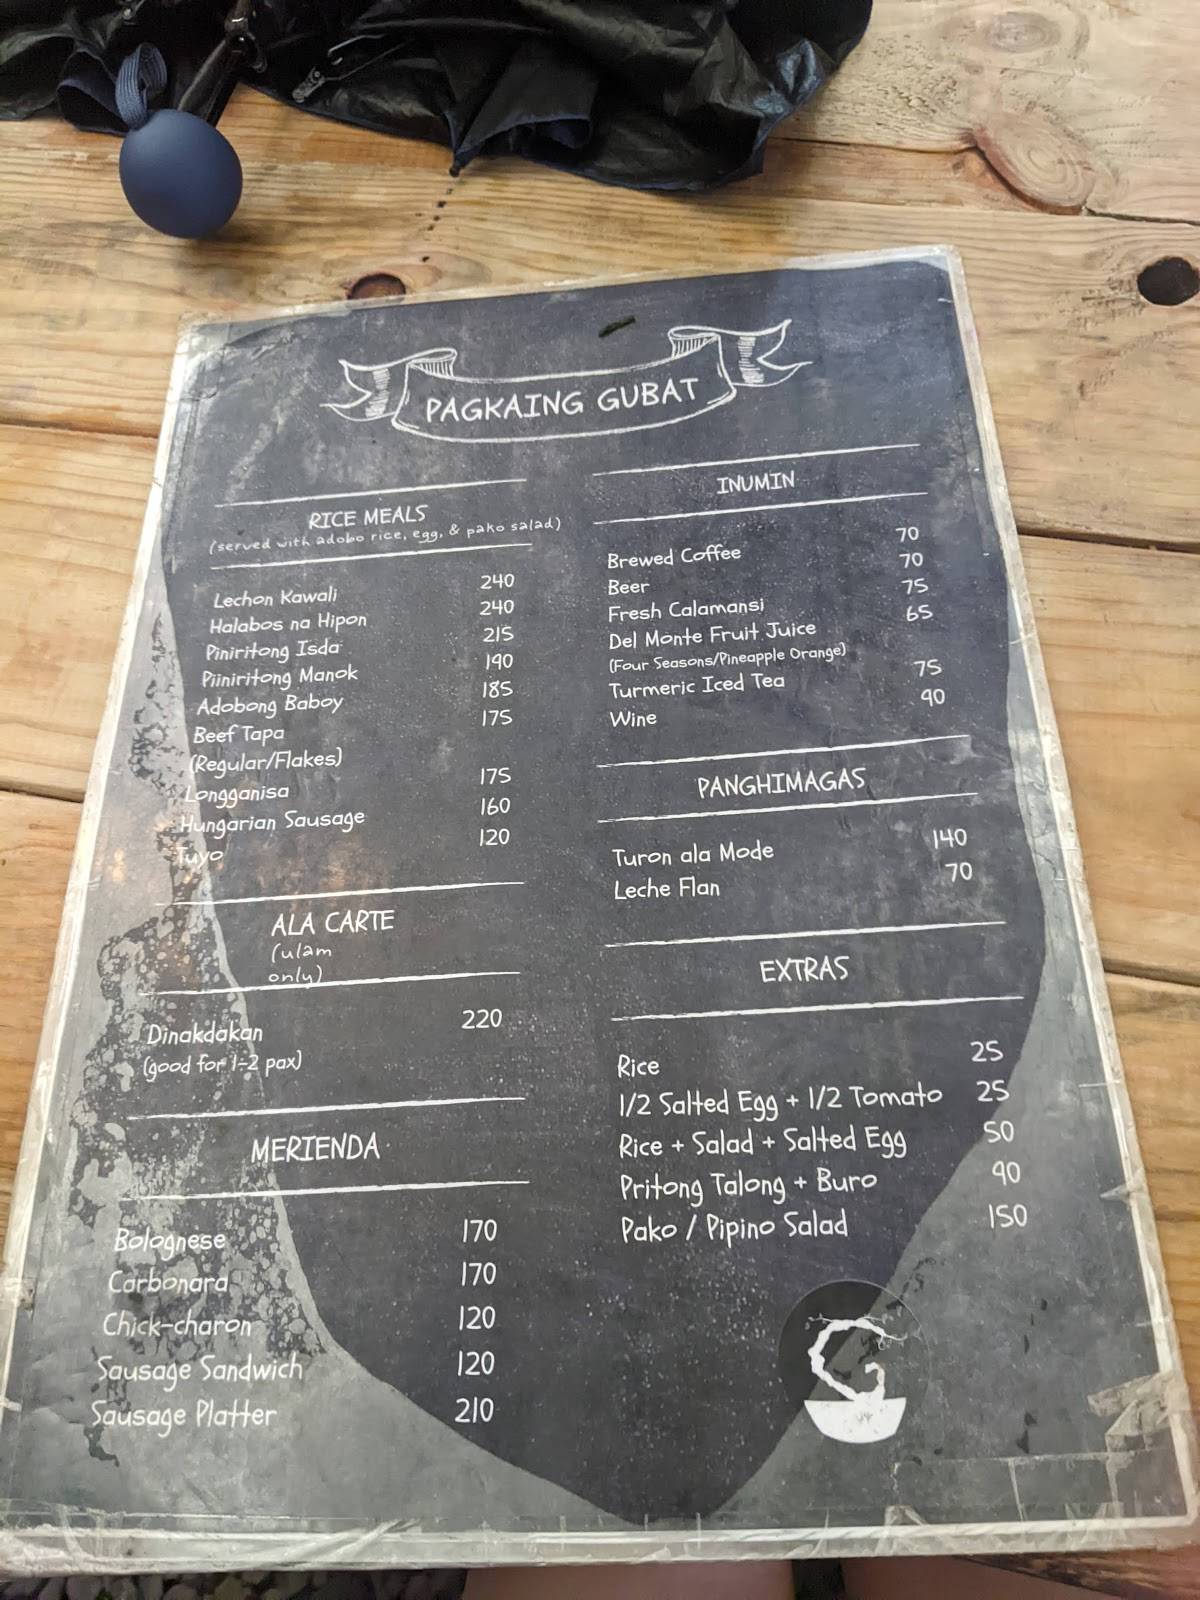 PAGKAING GUBAT
RICE MEALS
(served with adobo rice, egg, & pako salad)
Lechon Kawali 240
Halabos na Hipon 240
Piniritong Isda 215
Piiniritong Manok 190
Adobong Baboy 185
Beef Tapa 175
(Regular/Flakes)
Longganisa 175
Hungarian Sausage 160
Tuyo 120
ALA CARTE
(ulam
only)
Dinakdakan 220
(good for 1-2 pax)
MERIENDA
Bolognese 170
Carbonara 170
Chick-charon 120
Sausage Sandwich 120
Sausage Platter 210
INUMIN
Brewed Coffee 70
Beer 70
Fresh Calamansi 75
Del Monte Fruit Juice 65
(Four Seasons/Pineapple Orange)
Turmeric Iced Tea 75
Wine 90
PANGHIMAGAS
Turon ala Mode 140
Leche Flan 70
EXTRAS
Rice 25
1/2 Salted Egg + 1/2 Tomato 25
Rice + Salad + Salted Egg 50
Pritong Talong + Buro 90
Pako / Pipino Salad 150
G